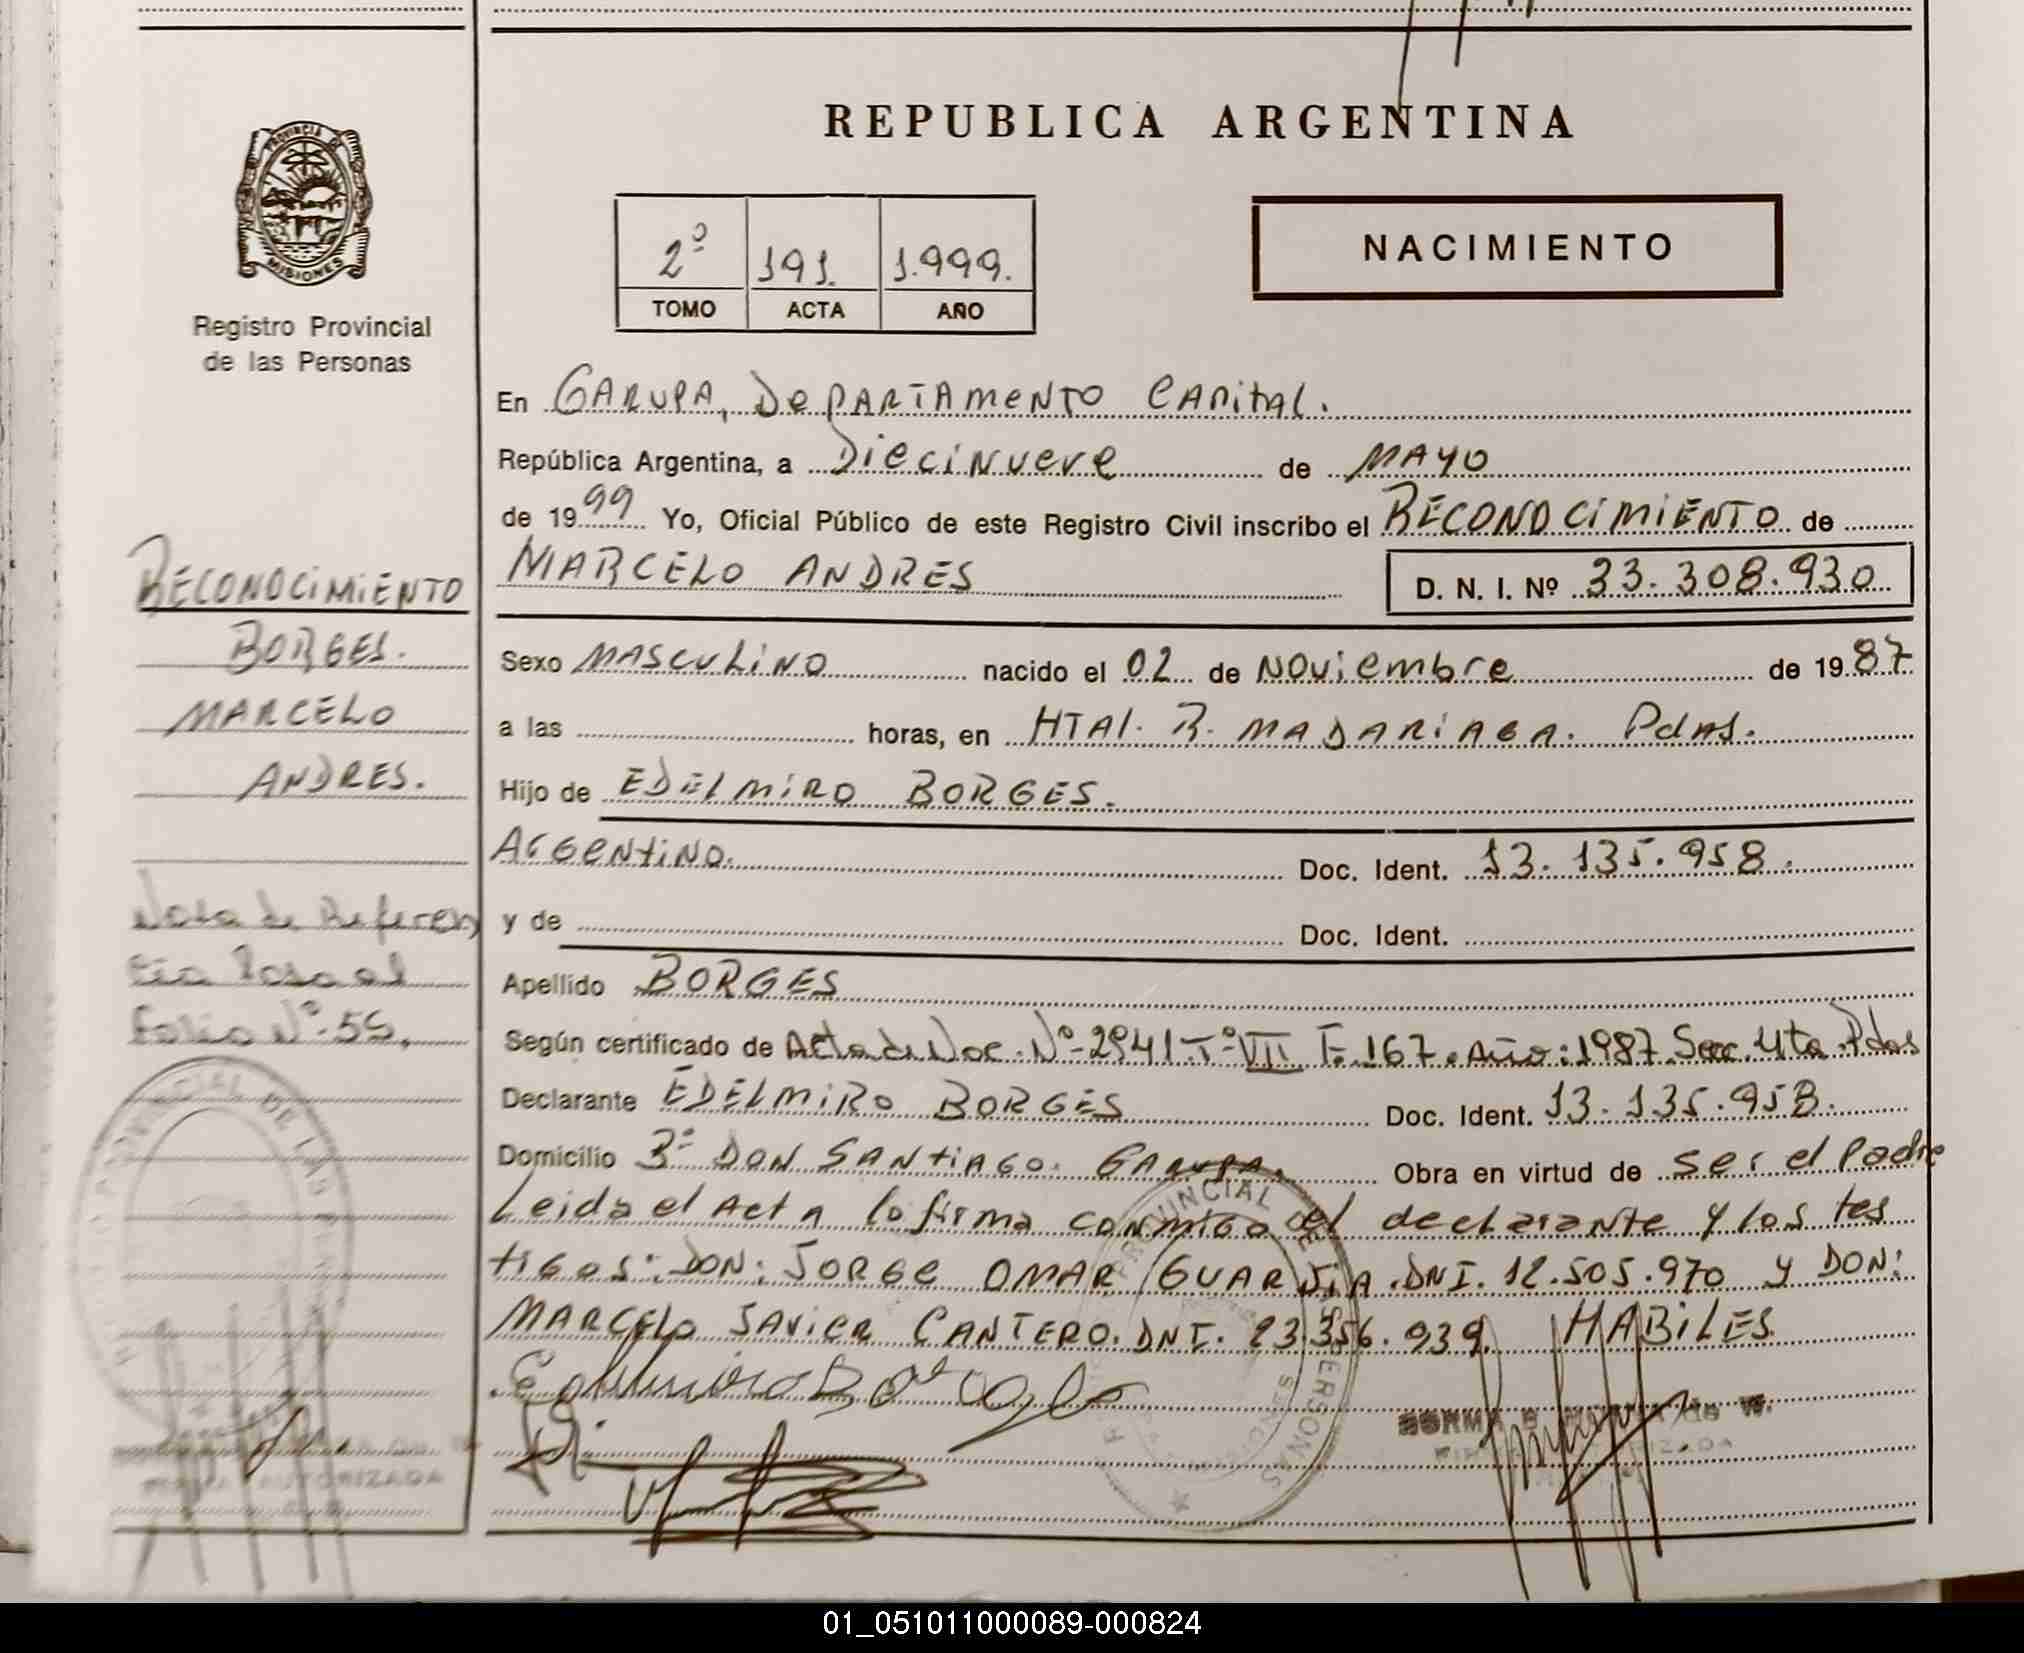 REPUBLICA ARGENTINA
PROVINCIA DE
MISIONES
Registro Provincial
de las Personas
2º 191. 1.999.
TOMO ACTA AÑO
NACIMIENTO
En GARUPA, DePARTAMENTO CAPital.
República Argentina, a Diecinueve de MAYO
de 1999 Yo, Oficial Público de este Registro Civil inscribo el RECONOCIMIENTO de
MARCELO ANDRES D. N. I. Nº 33.308.930
Sexo MASCULINO nacido el 02 de Noviembre de 1987
a las horas, en HTAl. R. MADARIAGA. Pdas.
Hijo de EDELMIRO BORGES.
Argentino. Doc. Ident. 13.135.958.
y de Doc. Ident.
Apellido BORGES
Según certificado de Acta de Nac. Nº 2941 Tº VII F. 167. Año: 1987 Secc. 4ta Pdas
Declarante EDELMIRO BORGES Doc. Ident. 13.135.958.
Domicilio 3º DON SANTIAGO. GARUPA. Obra en virtud de ser el Padre
Leida el Acta la firma conmigo el declarante y los tes
tigos: DON: JORGE OMAR GUARDIA. DNI. 12.505.970 y DON:
MARCELO JAVIER CANTERO. DNI. 23.356.939. HABILES
RECONOCIMIENTO
BORGES.
MARCELO
ANDRES.
Nota de Referen
cia Pasa al
Folio Nº 55.
PROVINCIAL DE LAS
FIRMA AUTORIZADA
PROVINCIAL DE PERSONAS
MISIONES
NORMA de W.
01_051011000089-000824